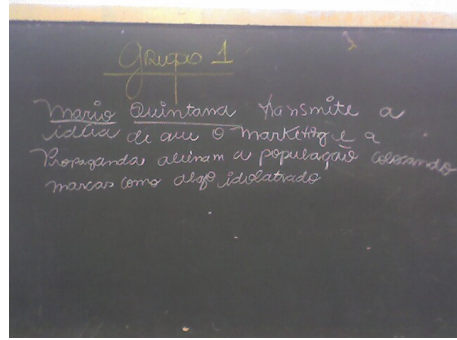 Grupo 1
Mario Quintana transmite a
idéia de que o marketing e a
Propaganda alienam a população colocando
marcas como algo idolatrado